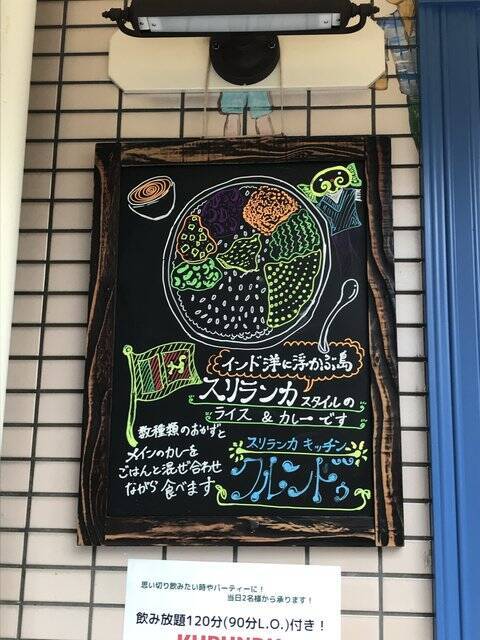 インド洋に浮かぶ島
スリランカ スタイルの
ライス & カレー です
数種類のおかずと
メインのカレーを
ごはんと混ぜ合わせ
ながら 食べます
スリランカ キッチン
クルンドゥ
思い切り飲みたい時やパーティーに！
当日2名様から承ります！
飲み放題120分(90分L.O.)付き！